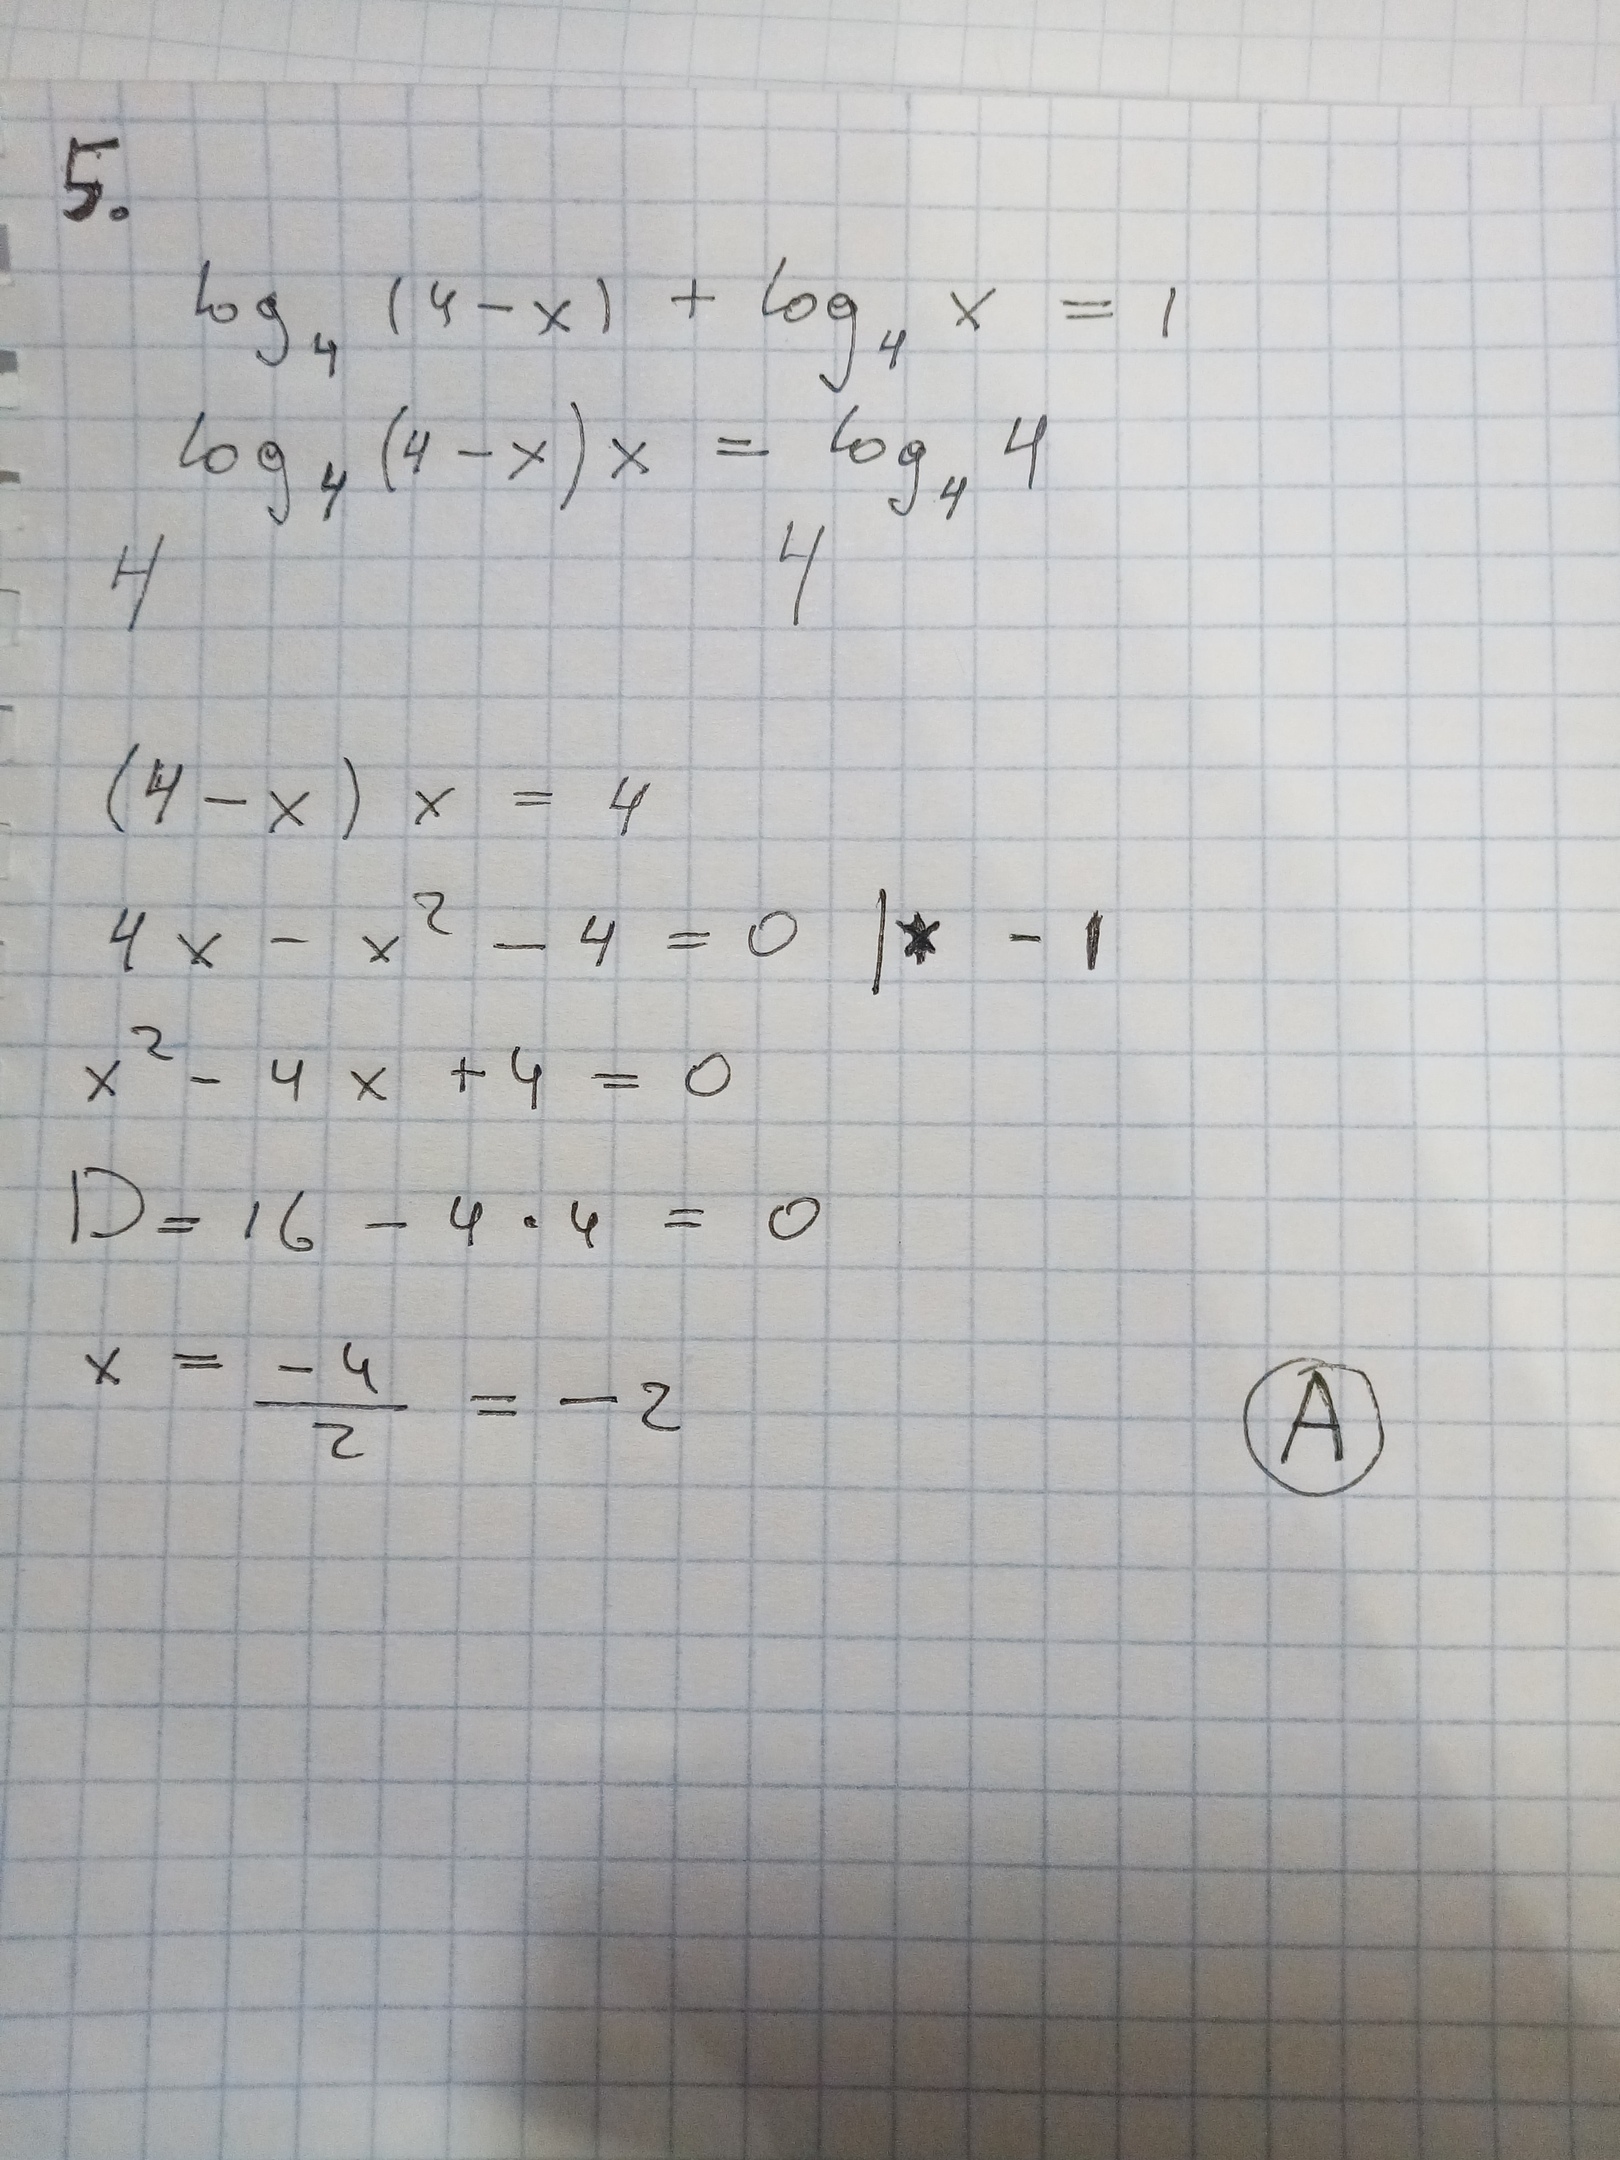 5.
log₄ (4 - x) + log₄ x = 1
log₄ (4 - x) x = log₄ 4
4 4
(4 - x) x = 4
4x - x² - 4 = 0 |* - 1
x² - 4x + 4 = 0
D = 16 - 4 · 4 = 0
x = -4/2 = -2
A